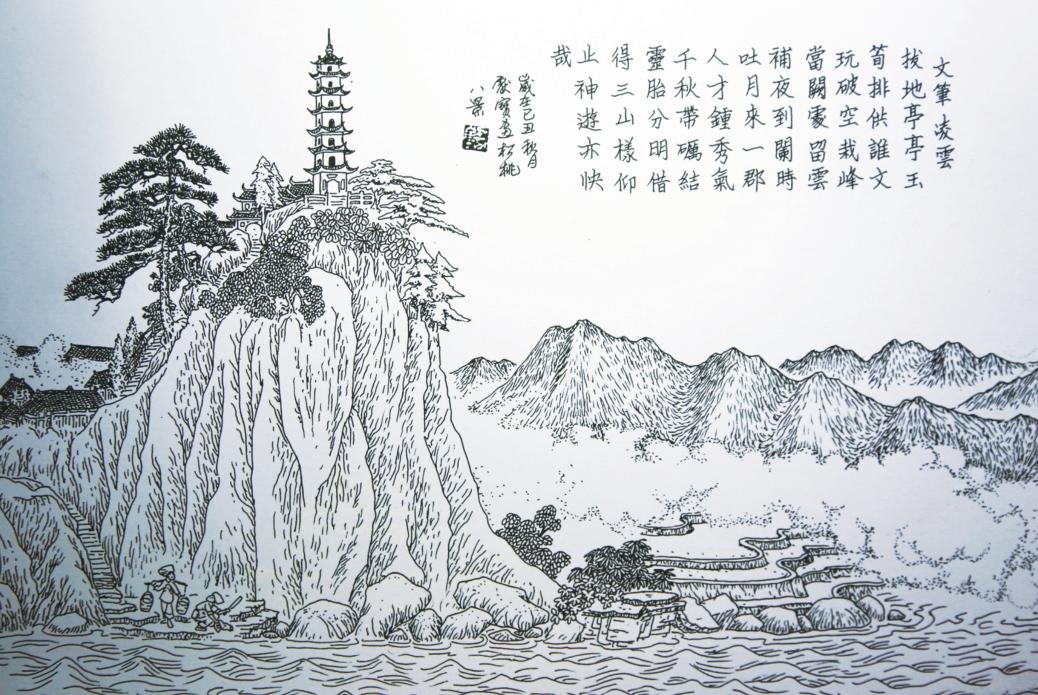 文筆凌雲
拔地亭亭玉
筍排供誰文
玩破空栽峰
當闕處留雲
補夜到闌時
吐月來一郡
人才鍾秀氣
千秋帶礪結
靈胎分明借
得三山樣仰
止神遊亦快
哉
歲在己丑秋月
寶畫
八景